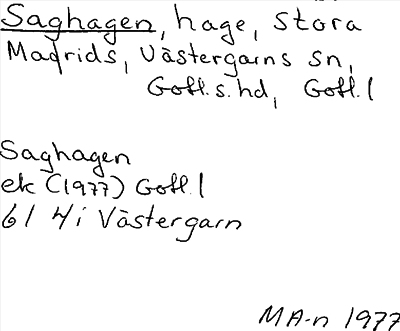 Saghagen, hage, Stora
Madrids, Västergarns sn,
Gotl. s. hd, Gotl. l
Saghagen
ek (1977) Gotl. l
61 4i Västergarn
MA-n 1977